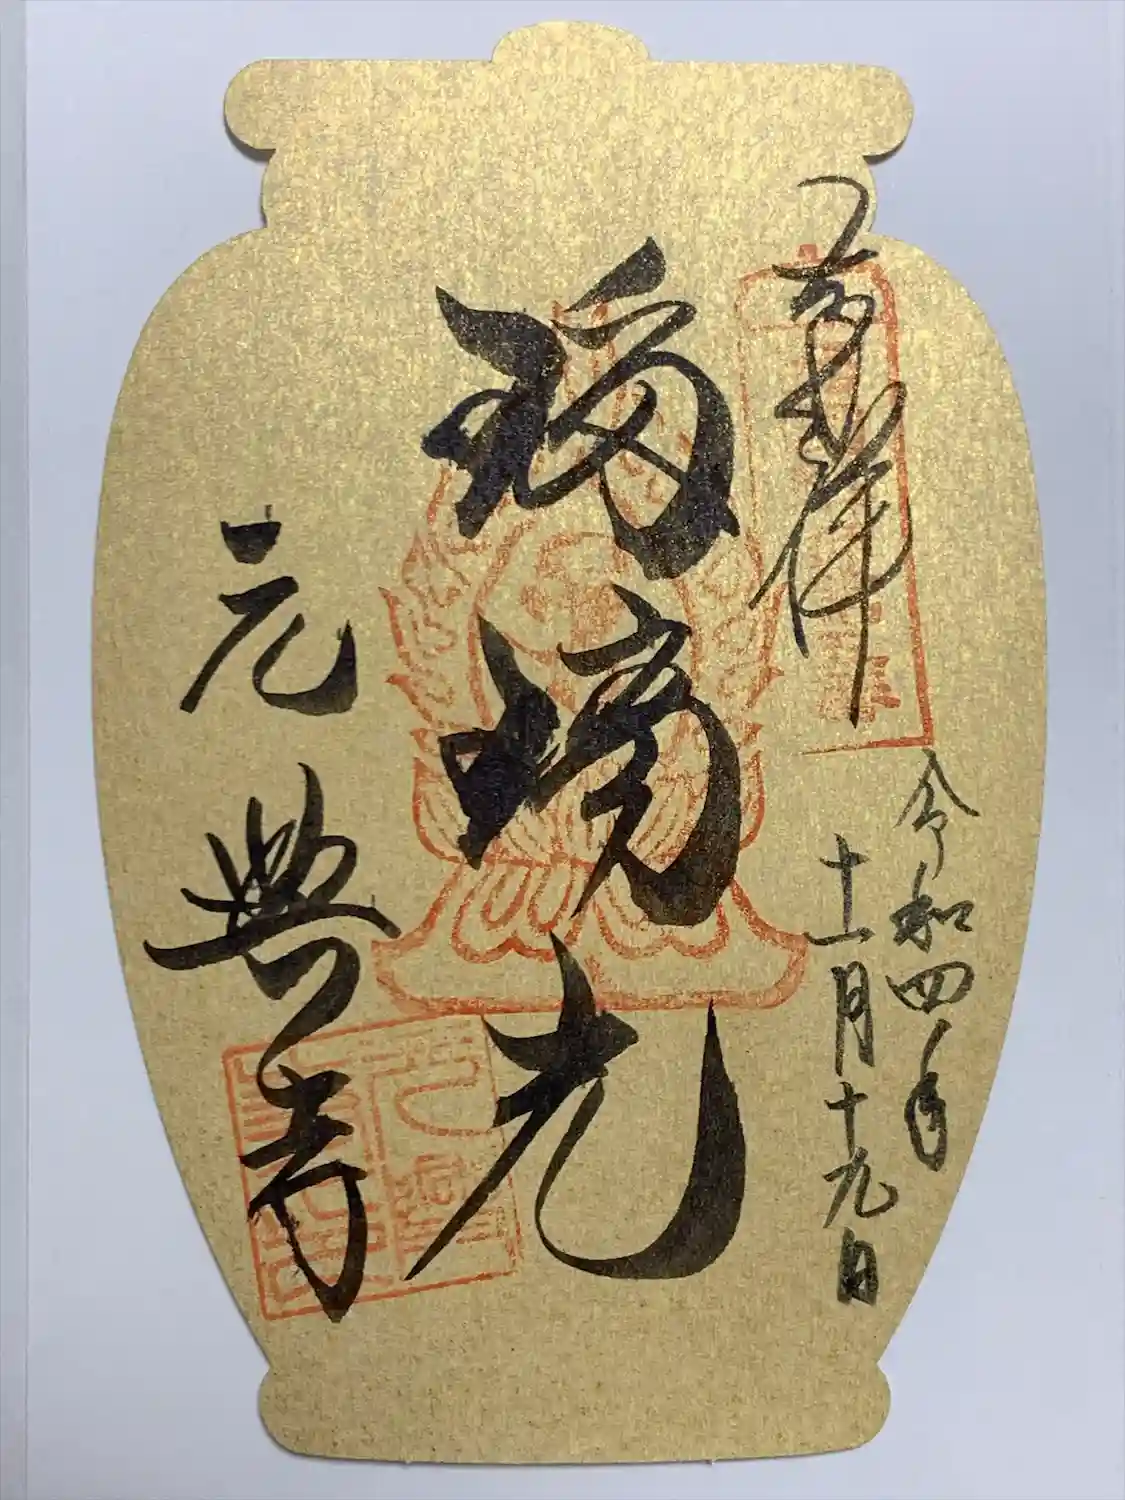 令和四年
十一月十九日
瑠璃光
元興寺